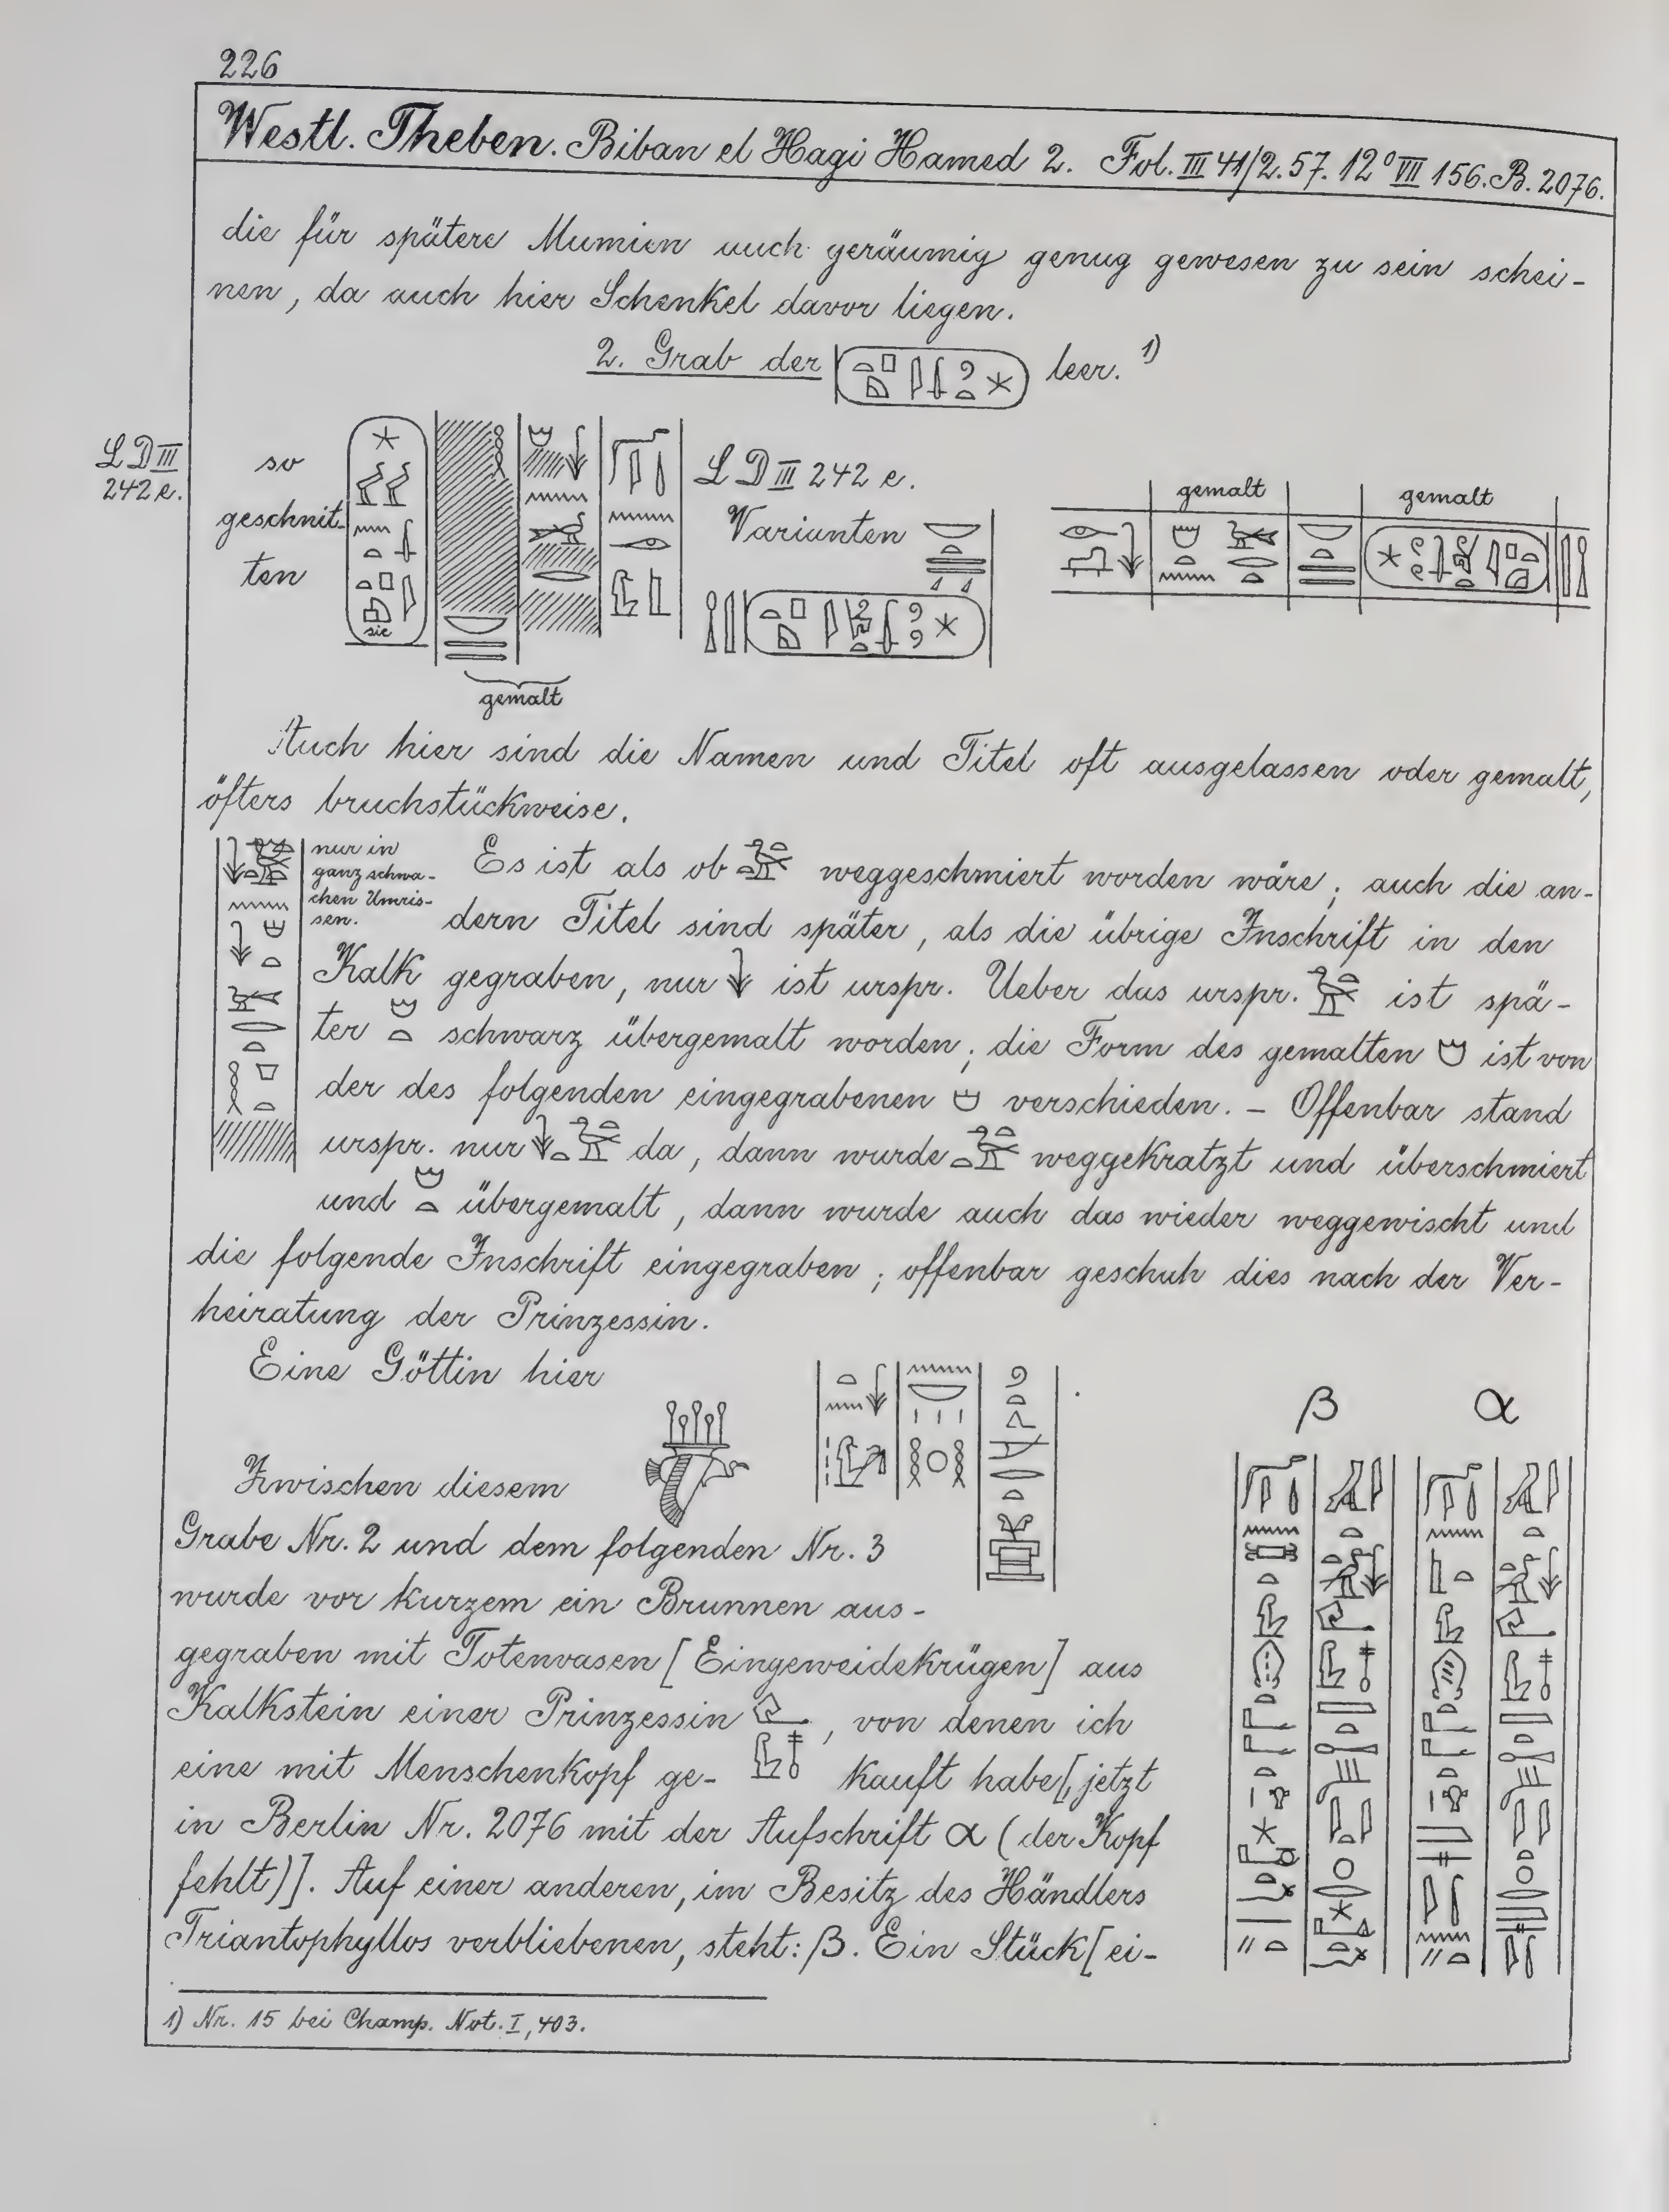 226
Westl. Theben. Biban el Hagi Hamed 2. Fol. III 41/2. 57. 12° VII 156. B. 2076.
die für spätere Mumien auch geräumig genug gewesen zu sein schei-
nen, da auch hier Schenkel davor liegen.
2. Grab der leer. 1)
LD III
242 e.
so
geschnit-
ten
sic
gemalt
LD III 242 e.
Varianten
gemalt
gemalt
Auch hier sind die Namen und Titel oft ausgelassen oder gemalt,
öfters bruchstückweise.
nur in
ganz schwa-
chen Umris-
sen.
Es ist als ob weggeschmiert worden wäre; auch die an-
dern Titel sind später, als die übrige Inschrift in den
Kalk gegraben, nur ist urspr. Ueber das urspr. ist spä-
ter schwarz übergemalt worden; die Form des gemalten ist von
der des folgenden eingegrabenen verschieden. – Offenbar stand
urspr. nur da, dann wurde weggekratzt und überschmiert
und übergemalt, dann wurde auch das wieder weggewischt und
die folgende Inschrift eingegraben; offenbar geschah dies nach der Ver-
heiratung der Prinzessin.
Eine Göttin hier .
Zwischen diesem
Grabe Nr. 2 und dem folgenden Nr. 3
wurde vor kurzem ein Brunnen aus-
gegraben mit Totenvasen [Eingeweidekrügen] aus
Kalkstein einer Prinzessin , von denen ich
eine mit Menschenkopf ge- kauft habe [, jetzt
in Berlin Nr. 2076 mit der Aufschrift α (der Kopf
fehlt)]. Auf einer anderen, im Besitz des Händlers
Triantophyllos verbliebenen, steht: β. Ein Stück [ei-
β α
1) Nr. 15 bei Champ. Not. I, 403.